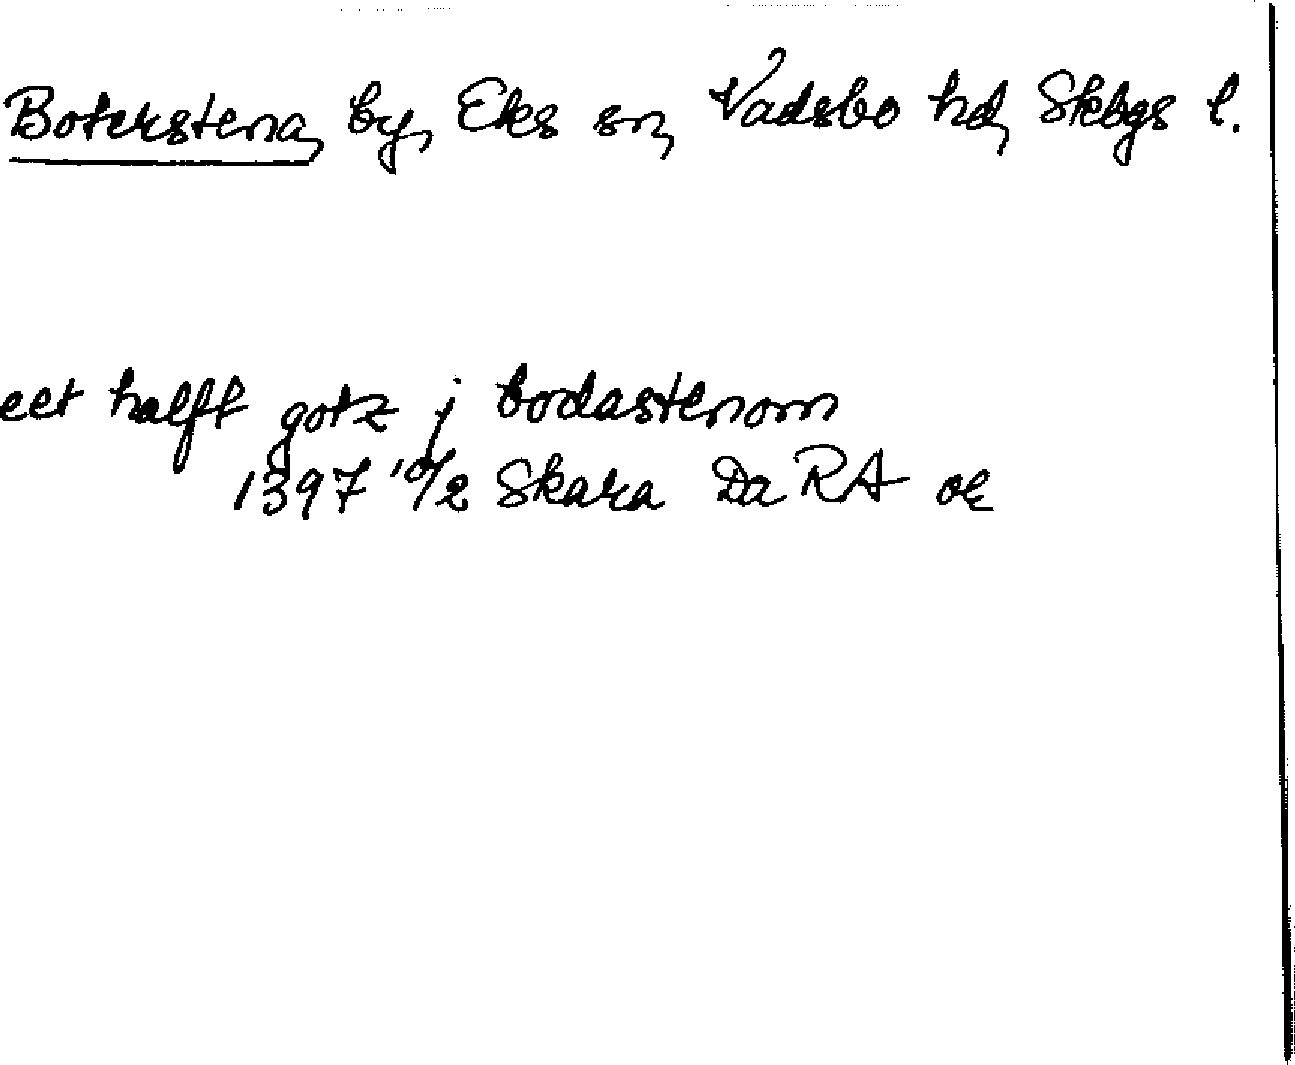 Botekstena, by, Eks sn, Vadsbo hd, Skbgs l.
eet halft gotz j bodastenom
1397 10/2 Skara Da RA oe